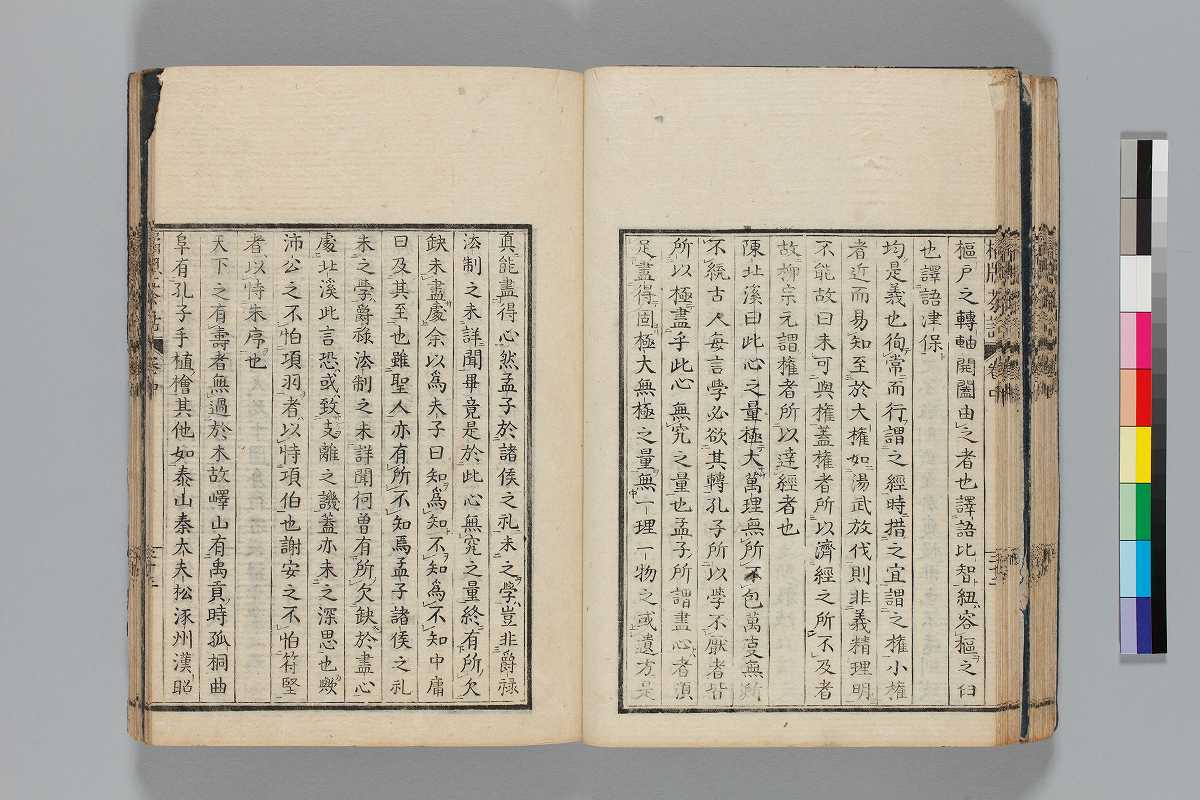 樞戸之轉軸開闔由之者也譯語比智紐容樞之臼
也譯語津保
均是義也徇常而行謂之經時措之宜謂之權小權
者近而易知至於大權如湯武放伐則非義精理明
不能故曰未可與權蓋權者所以濟經之所不及者
故柳宗元謂權者所以達經者也
陳北溪曰此心之量極大萬理無所不包萬事無所
不統古人每言學必欲其轉孔子所以學不厭者皆
所以極盡乎此心無究之量也孟子所謂盡心者須
是盡得固極大無極之量無一理一物之或遺方是
真能盡得心然孟子於諸侯之礼未之學豈非爵禄
法制之未詳聞畢竟是於此心無究之量終有所欠
缺未盡處余以爲夫子曰知爲知不知爲不知中庸
曰及其至也雖聖人亦有所不知焉孟子諸侯之礼
未之學爵禄法制之未詳聞何曽有所欠缺於盡心
處北溪此言恐或致支離之譏蓋亦未之深思也歟
沛公之不怕項羽者以恃項伯也謝安之不怕符堅
者以恃朱序也
天下之有壽者無過於木故嶧山有禹貢時孤桐曲
阜有孔子手植檜其他如泰山秦大夫松涿州漢昭